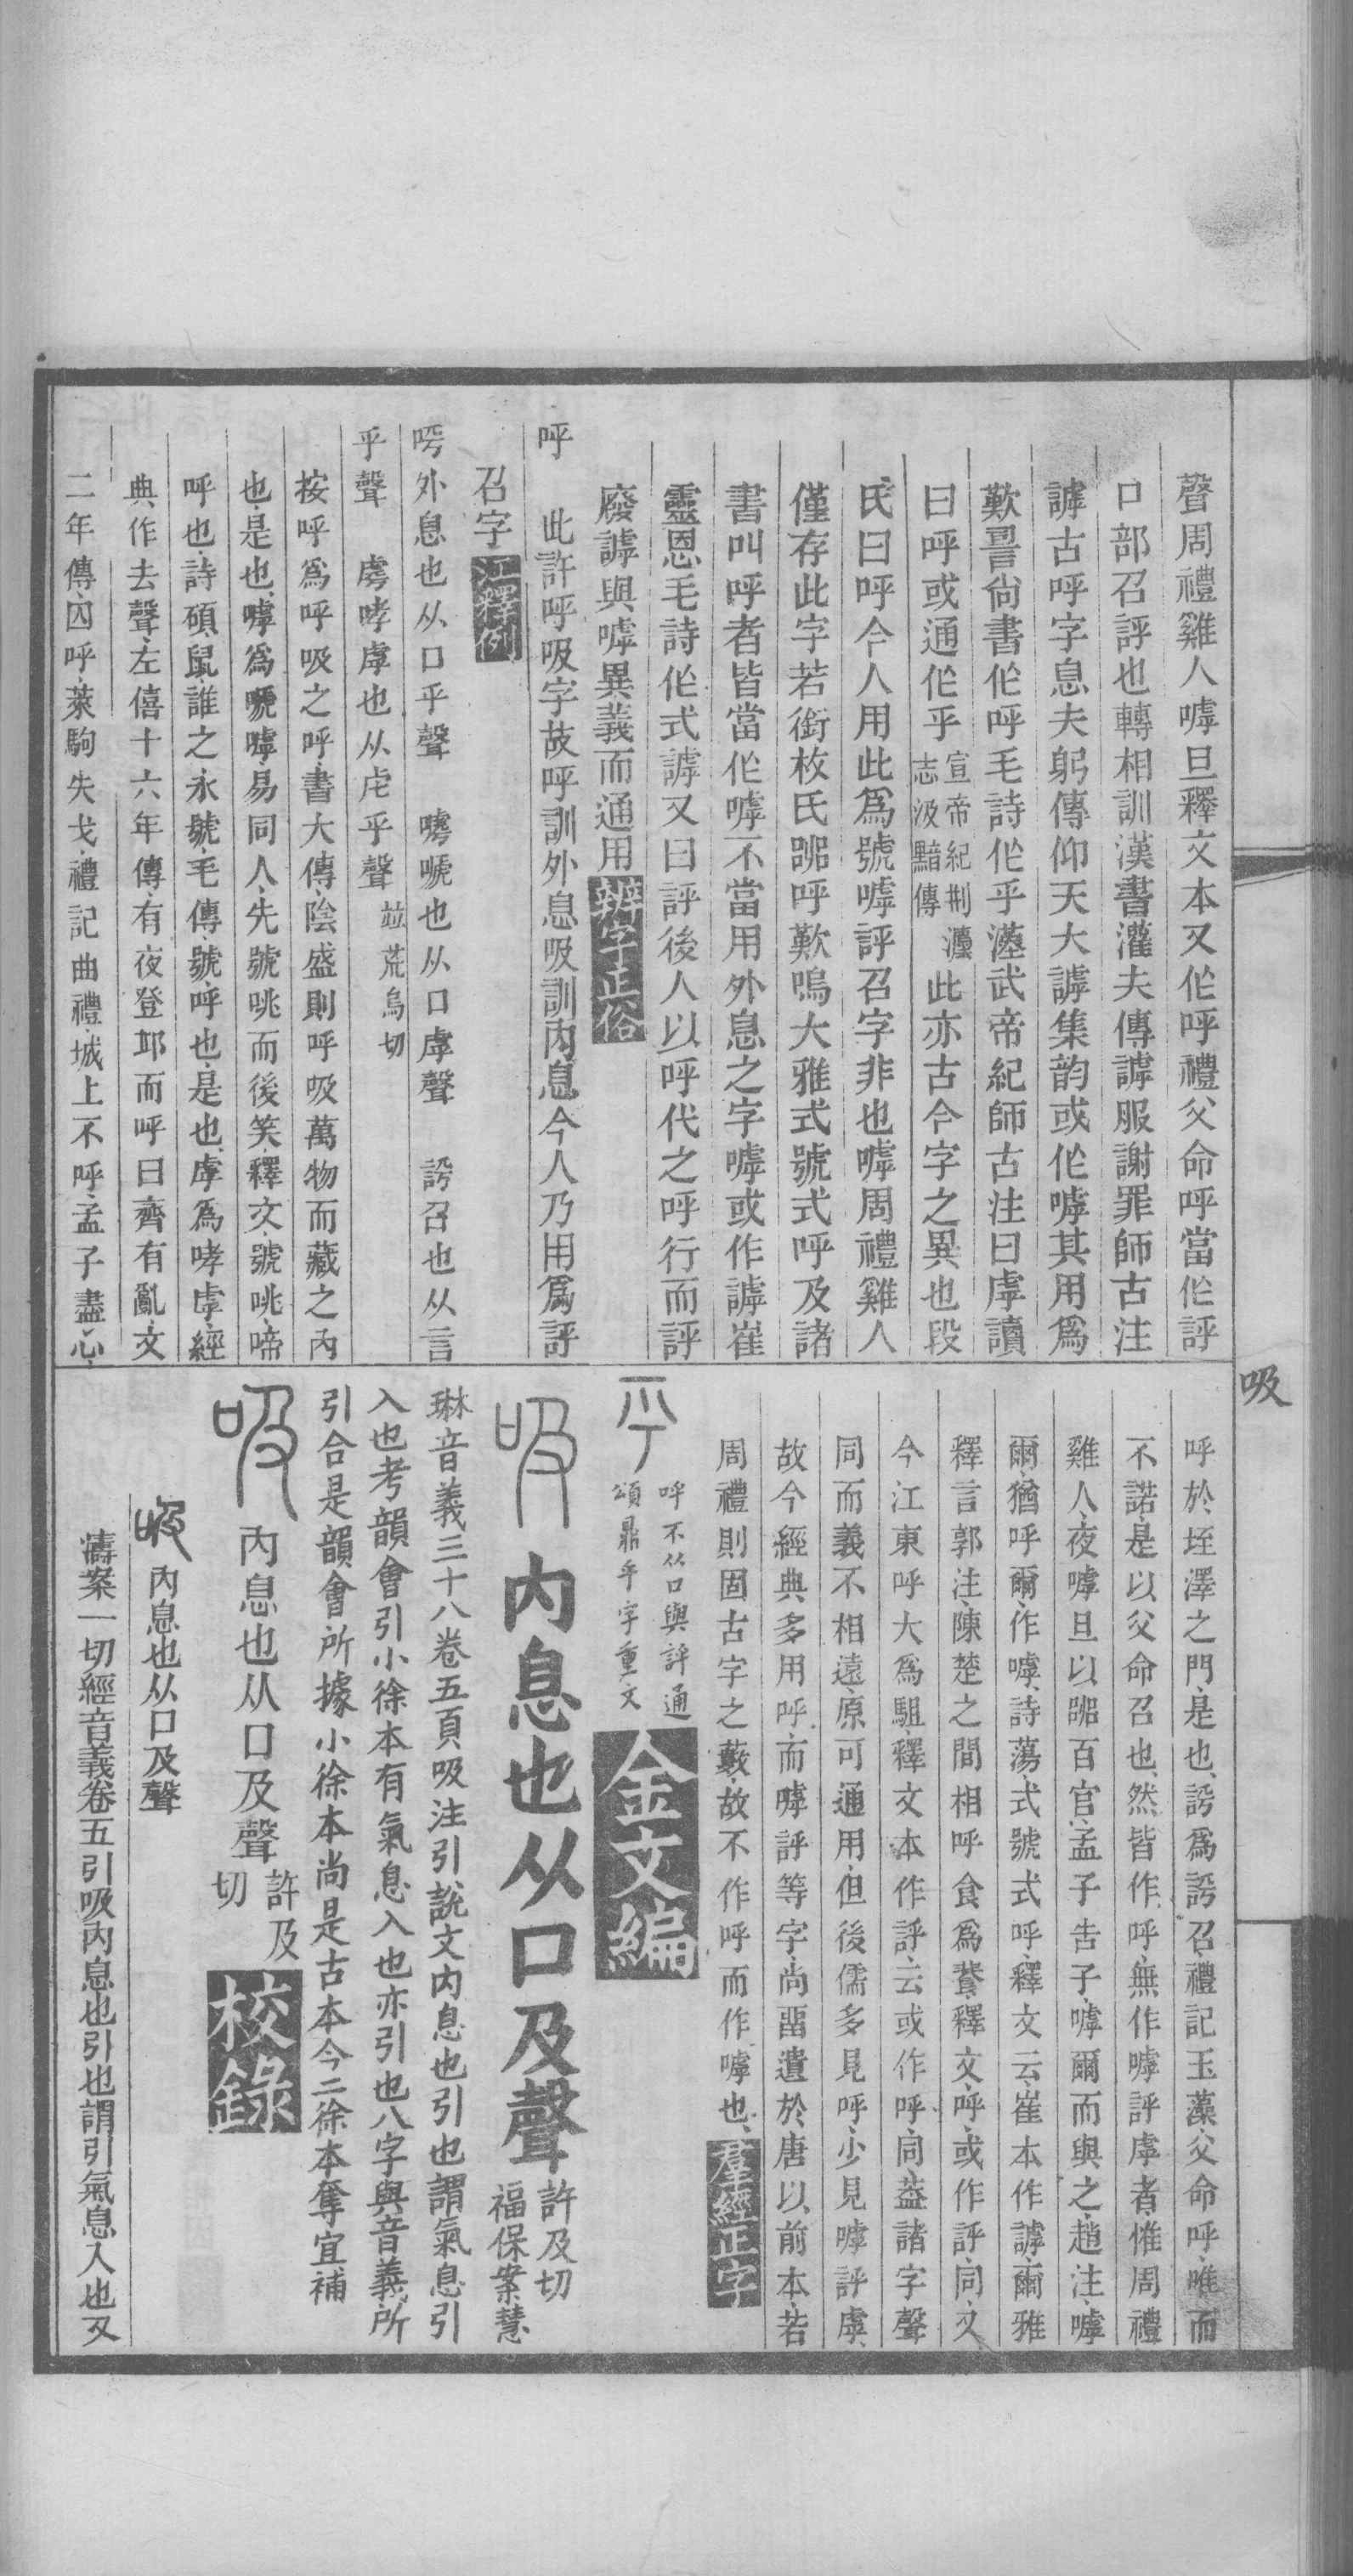 聲周禮雞人嘑旦釋文本又作呼禮父命呼當作評
口部召評也轉相訓漢書灌夫傳謼服謝罪師古注
謼古呼字息夫躬傳仰天大謼集韵或作嘑其用爲
歎㫷尙書作呼毛詩作乎漢武帝紀師古注曰虖讀
曰呼或通作乎宣帝紀荆灋
志汲黯傳此亦古今字之異也段
氏曰呼今人用此爲號嘑評召字非也嘑周禮雞人
僅存此字若銜枚氏嘂呼歎嗚大雅式號式呼及諸
書叫呼者皆當作嘑不當用外息之字嘑或作謼崔
靈恩毛詩作式謼又曰評後人以呼代之呼行而評
廢謼與嘑異義而通用辨字正俗
呼 此許呼吸字故呼訓外息吸訓內息今人乃用爲評
召字江釋例
呺外息也从口乎聲 嘑唬也从口虖聲 謣召也从言
乎聲 虖哮虖也从虍乎聲 竝荒烏切
按呼爲呼吸之呼書大傳陰盛則呼吸萬物而藏之內
也是也嘑爲唬嘑易同人先號咷而後笑釋文號咷啼
呼也詩碩鼠誰之永號毛傳號呼也是也虖爲哮虖經
典作去聲左僖十六年傳有夜登邱而呼曰齊有亂文
二年傳囚呼萊駒失戈禮記曲禮城上不呼孟子盡心
吸
呼於垤澤之門是也謣爲謣召禮記玉藻父命呼唯而
不諾是以父命召也然皆作呼無作嘑評虖者惟周禮
雞人夜嘑旦以嘂百官孟子告子嘑爾而與之趙注嘑
爾猶呼爾作嘑詩蕩式號式呼釋文云崔本作謼爾雅
釋言郭注陳楚之間相呼食爲䬯釋文呼或作評同又
今江東呼大爲駔釋文本作評云或作呼同蓋諸字聲
同而義不相遠原可通用但後儒多見呼少見嘑評虖
故今經典多用呼而嘑評等字尚畱遺於唐以前本若
周禮則固古字之藪故不作呼而作嘑也羣經正字
呼不从口與評通
頌鼎乎字重文金文編
吸 內息也从口及聲許及切
福保案慧
琳音義三十八卷五頁吸注引說文內息也引也謂氣息引
入也考韻會引小徐本有氣息入也亦引也八字與音義所
引合是韻會所據小徐本尚是古本今二徐本奪宜補
吸 內息也从口及聲許及
切校錄
吸 內息也从口及聲
濤案一切經音義卷五引吸內息也引也謂引氣息入也又